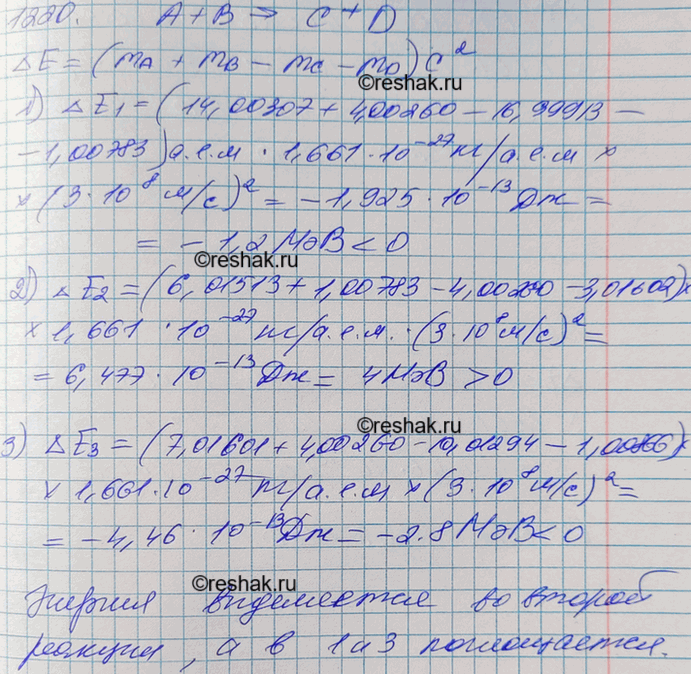 1220. A + B → C + D
ΔE = (mA + mB − mC − mD) c²
©reshak.ru
1) ΔE1 = (14,00307 + 4,00260 − 16,99913 −
− 1,00783) а.е.м · 1,661 · 10⁻²⁷ кг/а.е.м ×
× (3 · 10⁸ м/с)² = −1,925 · 10⁻¹³ Дж =
= −1,2 МэВ < 0
©reshak.ru
2) ΔE2 = (6,01513 + 1,00783 − 4,00260 − 3,01602) ×
× 1,661 · 10⁻²⁷ кг/а.е.м. · (3 · 10⁸ м/с)² =
= 6,477 · 10⁻¹³ Дж = 4 МэВ > 0
©reshak.ru
3) ΔE3 = (7,01601 + 4,00260 − 10,01294 − 1,00866) ×
× 1,661 · 10⁻²⁷ кг/а.е.м × (3 · 10⁸ м/с)² =
= −4,46 · 10⁻¹³ Дж = −2.8 МэВ < 0
©reshak.ru
Энергия выделяется во второй
реакции, а в 1 и 3 поглощается.